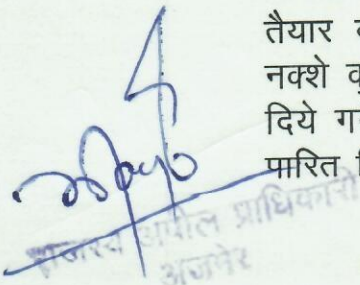 तैयार
नक्शे
दिये
पारित
राजस्व अपील प्राधिकारी
अजमेर